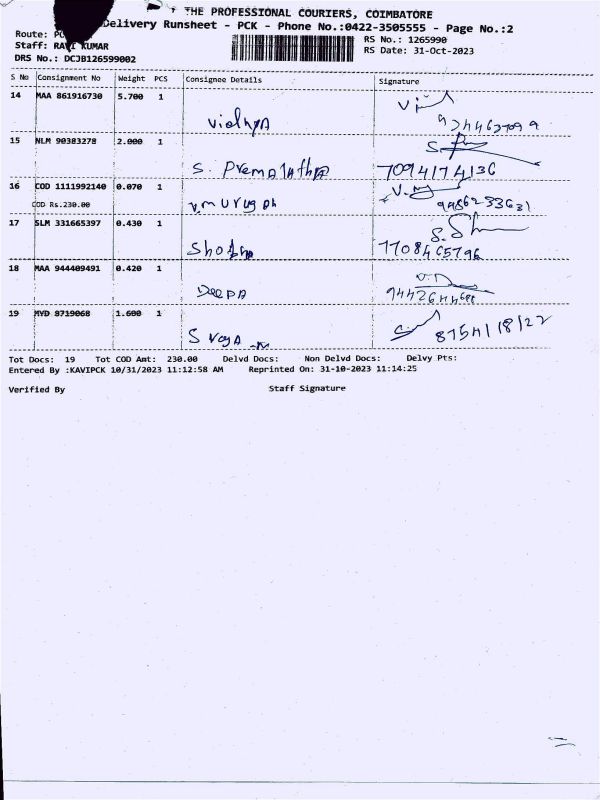 THE PROFESSIONAL COURIERS, COIMBATORE
Delivery Runsheet - PCK - Phone No.:0422-3505555 - Page No.:2
Route:
RS No.: 1265990
Staff: RAVI KUMAR
RS Date: 31-Oct-2023
DRS No.: DCJB126599002
S No Consignment No Weight PCS Consignee Details Signature
14 MAA 861916730 5.700 1
Vidhya
15 NLM 90383278 2.000 1
S. Premalatha 7094174136
16 COD 1111992140 0.070 1
COD Rs.230.00 V.murugan 9486233631
17 SLM 331665397 0.430 1
Shobha 7708465796
18 MAA 944409491 0.420 1
Deepa
19 MYD 8719068 1.600 1
Tot Docs: 19 Tot COD Amt: 230.00 Delvd Docs: Non Delvd Docs: Delvy Pts:
Entered By :KAVIPCK 10/31/2023 11:12:58 AM Reprinted On: 31-10-2023 11:14:25
Verified By Staff Signature